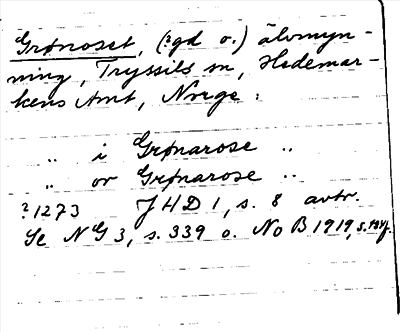 Grønoset, (?gd o.) älvmyn-
ning, Tryssils sn, Hedemar-
kens Amt, Norge:
„ i Grønarose „
„ or Grønarose „
?1273 JHD 1, s. 8 avtr.
Se NG 3, s. 339 o. NoB 1919, s.